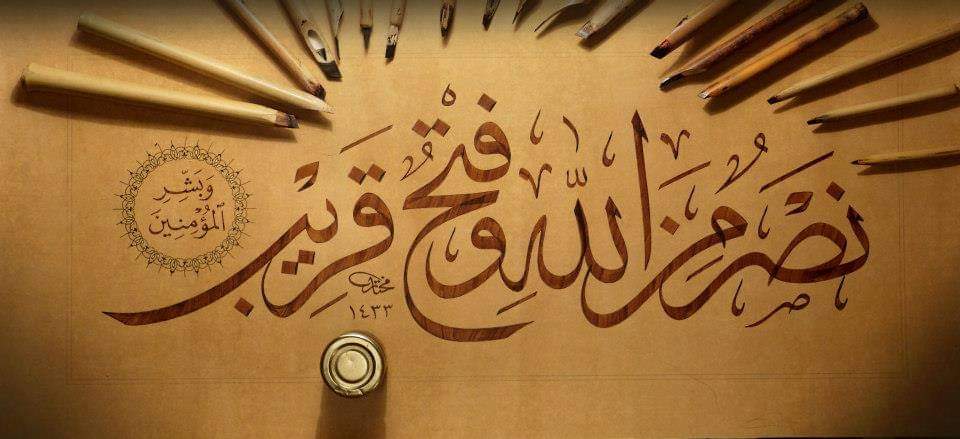 نَصْرٌ مِنَ اللّٰهِ وَفَتْحٌ قَرِيْبٌ
وَبَشِّرِ
الْمُؤْمِنِينَ
مختار
١٤٣٣